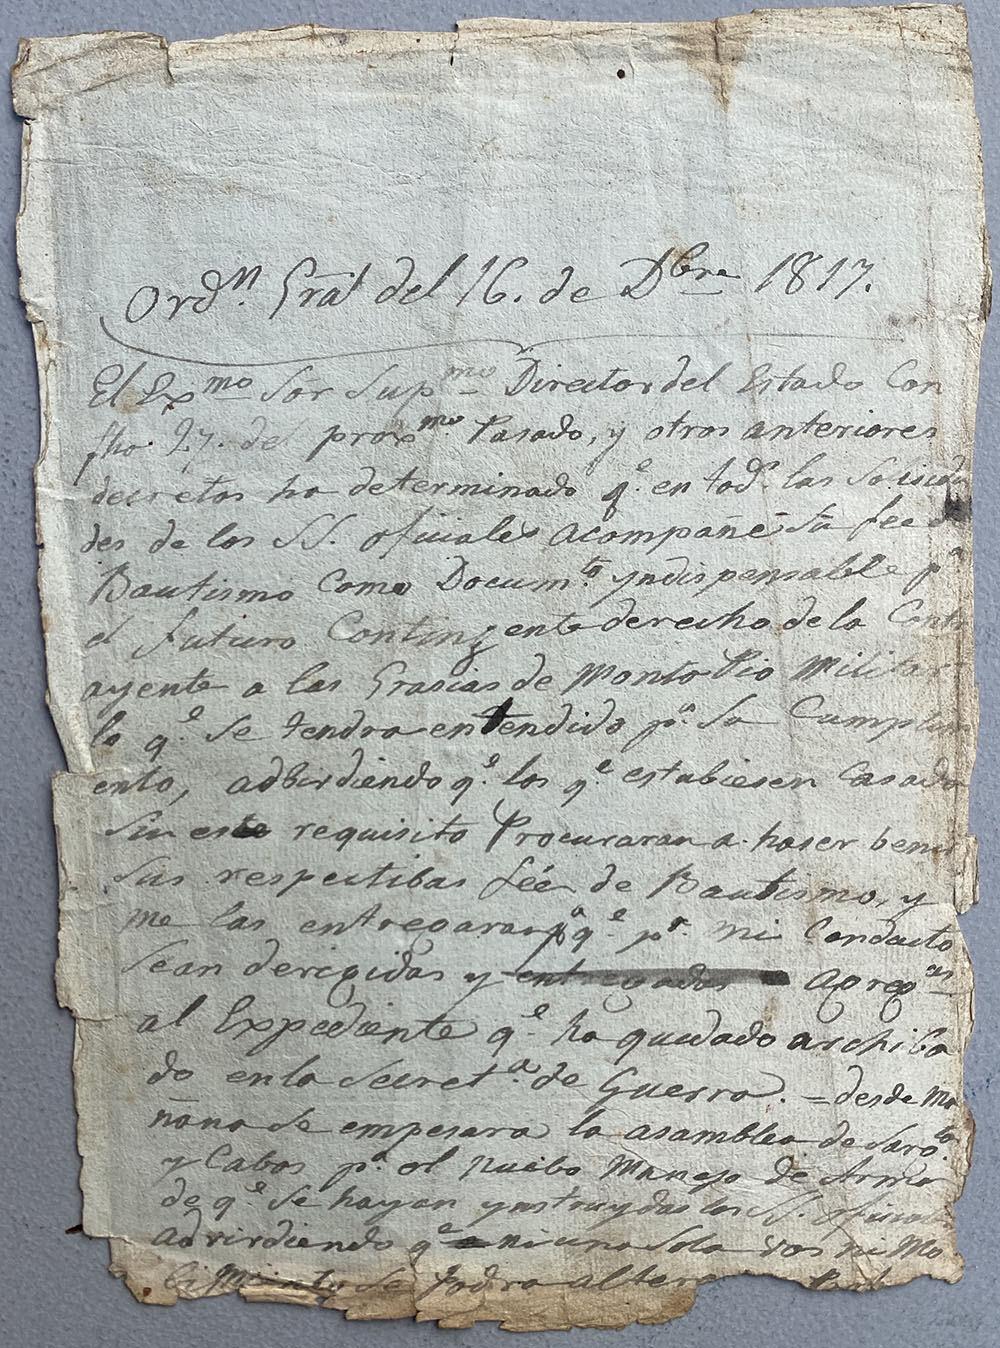 Ordn. Gral del 16. de Dbre 1817.
El Exmo Sor Supmo Director del Estado Con
fho. 27. del proxmo. Pasado, y otros anteriores
decretos ha determinado q.e en tods. las Solicitu
des de los SS. oficiales acompañe Sũ fee de
Bautismo Como Docum.to yndispensable p.a
el futuro Contingente derecho de la Contr
ayente a las Grasias de Monte Pio Militar
lo q.e Se tendra entendido p.a Su Cumplim
ento, adbirdiendo q.e los q.e estubiesen Casados
Sin este requisito Procuraran a haser benir
Sus respectibas feé de Bautismo, y
me las entregaran pa q.e p.r mi Conducto
Sean derigidas y entregadas agregas
al Expediente q.e ha quedado archiba
do en la Secret.a de Guerra. = desde Ma
ñana Se empesara la asamblea de Sarg.to
y Cabos p.a el nuebo Manejo de Arma
de q.e Se hayan ynstruydos los SS. oficiales
advirdiendo q.e ni una Sola vos ni Mo
bimiento Se podra altera